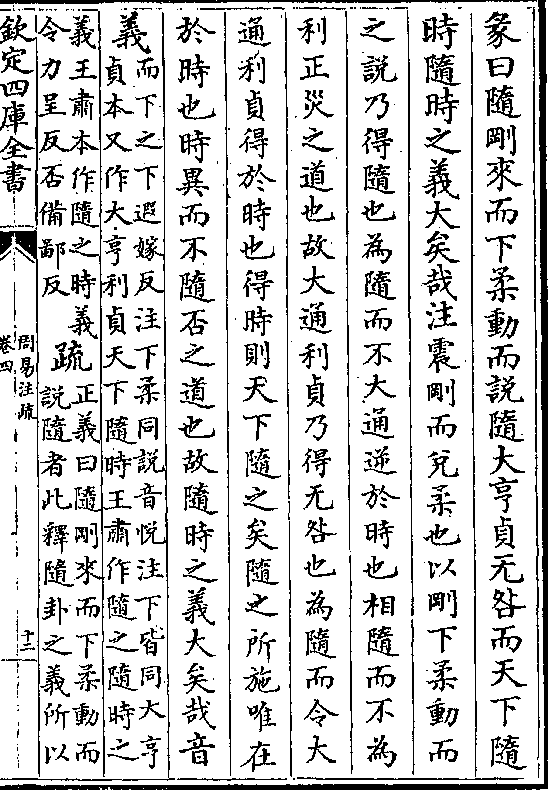 彖曰隨剛來而下柔動而說隨大亨貞无咎而天下隨
時隨時之義大矣哉注震剛而兌柔也以剛下柔動而
之說乃得隨也為隨而不大通逆於時也相隨而不為
利正災之道也故大通利貞乃得无咎也為隨而令大
通利貞得於時也得時則天下隨之矣隨之所施唯在
於時也時異而不隨否之道也故隨時之義大矣哉音
義而下之下遐嫁反注下柔同說音悅注下皆同大亨
貞本又作大亨利貞天下隨時王肅作隨之隨時之
義王肅本作隨之時義疏正義曰隨剛來而下柔動而
令力呈反否備鄙反說隨者此釋隨卦之義所以
欽定四庫全書
周易注疏
卷四
十二